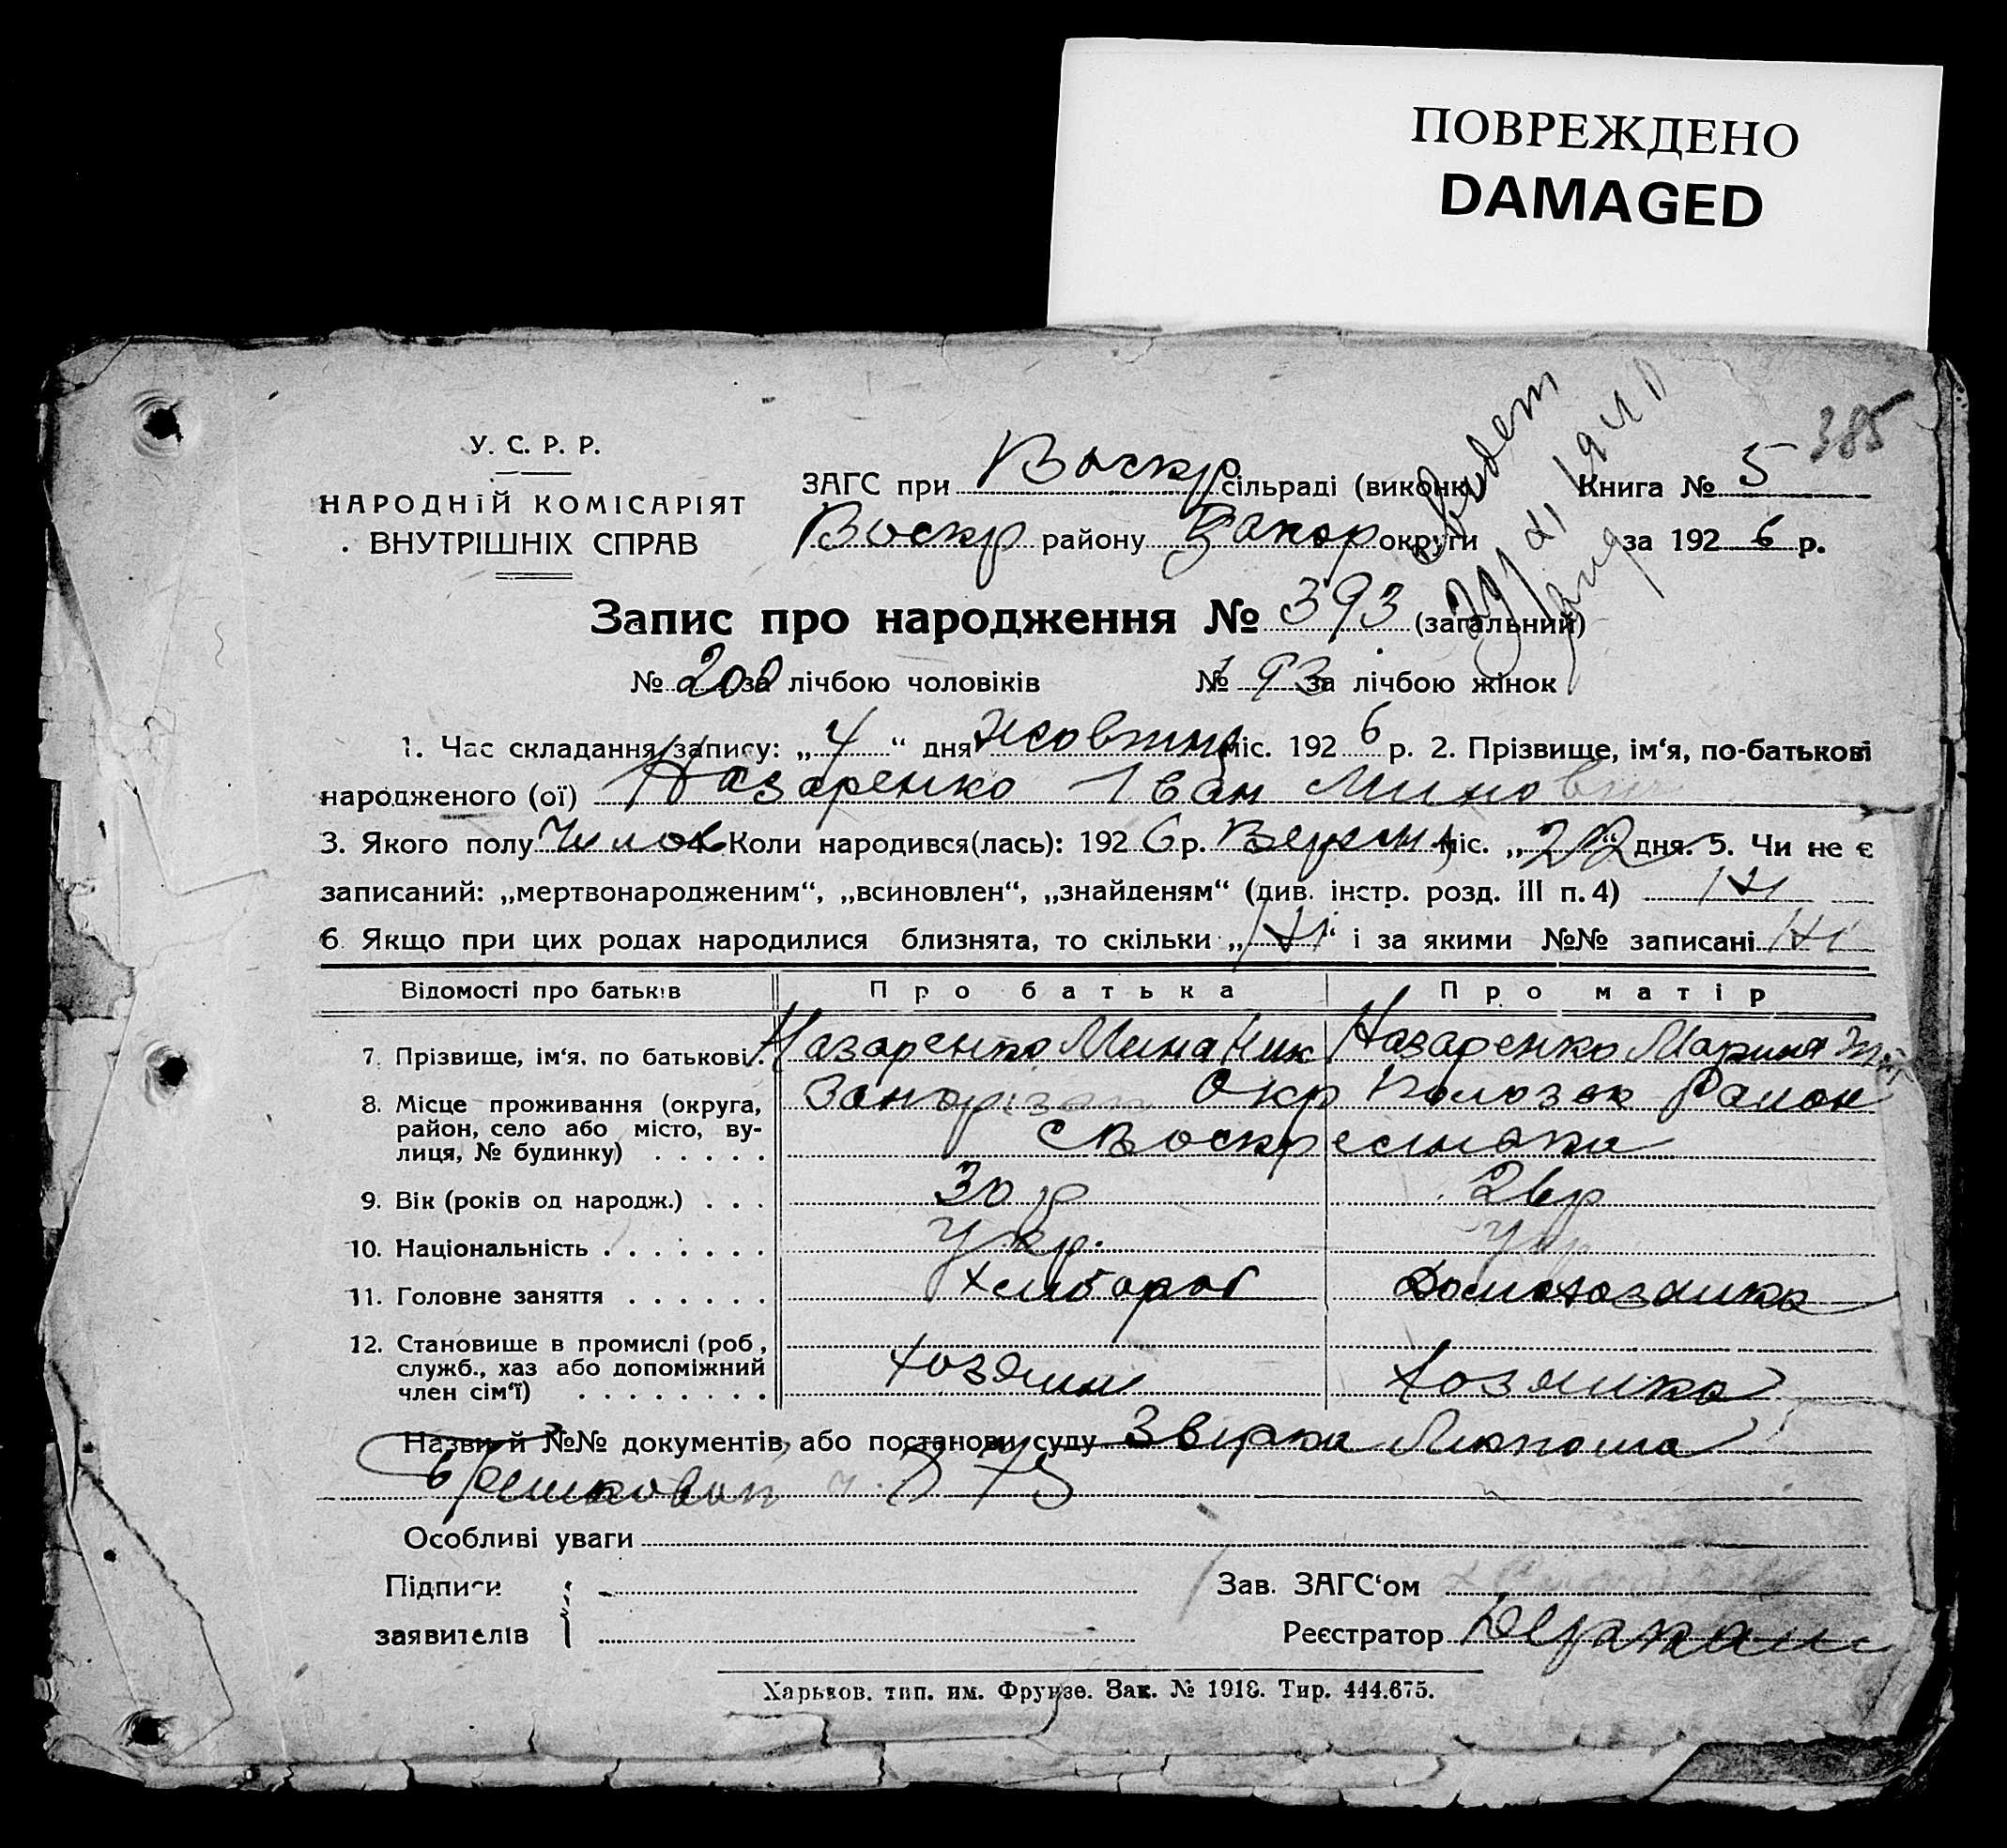 ПОВРЕЖДЕНО
DAMAGED
385
У. С. Р. Р.
НАРОДНІЙ КОМІСАРІЯТ
ВНУТРІШНІХ СПРАВ
ЗАГС при Воскр сільраді (виконк.) Книга № 5
Воскр району Запор округи за 192 6 р.
Запис про народження № 393 (загальний)
№ 200 за лічбою чоловіків № 193 за лічбою жінок
1. Час складання запису: „ 4 “ дня Жовтня міс. 192 6 р. 2. Прізвище, ім‘я, по-батькові
народженого (ої) Назаренко Іван Минович
3. Якого полу Чолов 4. Коли народився(лась): 192 6 р. Версня міс. „ 22 “ дня. 5. Чи не є
записаний: „мертвонародженим“, „всиновлен“, „знайденям“ (див. інстр. розд. III п. 4) Ні
6 Якщо при цих родах народилися близнята, то скільки „ Ні “ і за якими №№ записані Ні
Відомості про батьків Про батька Про матір
7. Прізвище, ім‘я, по батькові . Назаренко Мина Ник Назаренко Марина
8. Місце проживання (округа, Запорізак Окр Пологов Район
район, село або місто, ву- с Воскресенка
лиця, № будинку) . . . . .
9. Вік (років од народж.) . . . 30 р 26 р
10. Національність . . . . . . . Укр. Укр
11. Головне заняття . . . . . . Хлібороб Домохозяйка
12. Становище в промислі (роб,
служб., хаз або допоміжний Хозяин Хозяйка
член сім‘ї) . . . . . . . .
Назви й №№ документів, або постанови суду Звірка
Особливі уваги
Підписи Зав. ЗАГС‘ом
заявителів Реєстратор
Харьков. тип. им. Фрунзе. Зак. № 1918. Тир. 444.675.